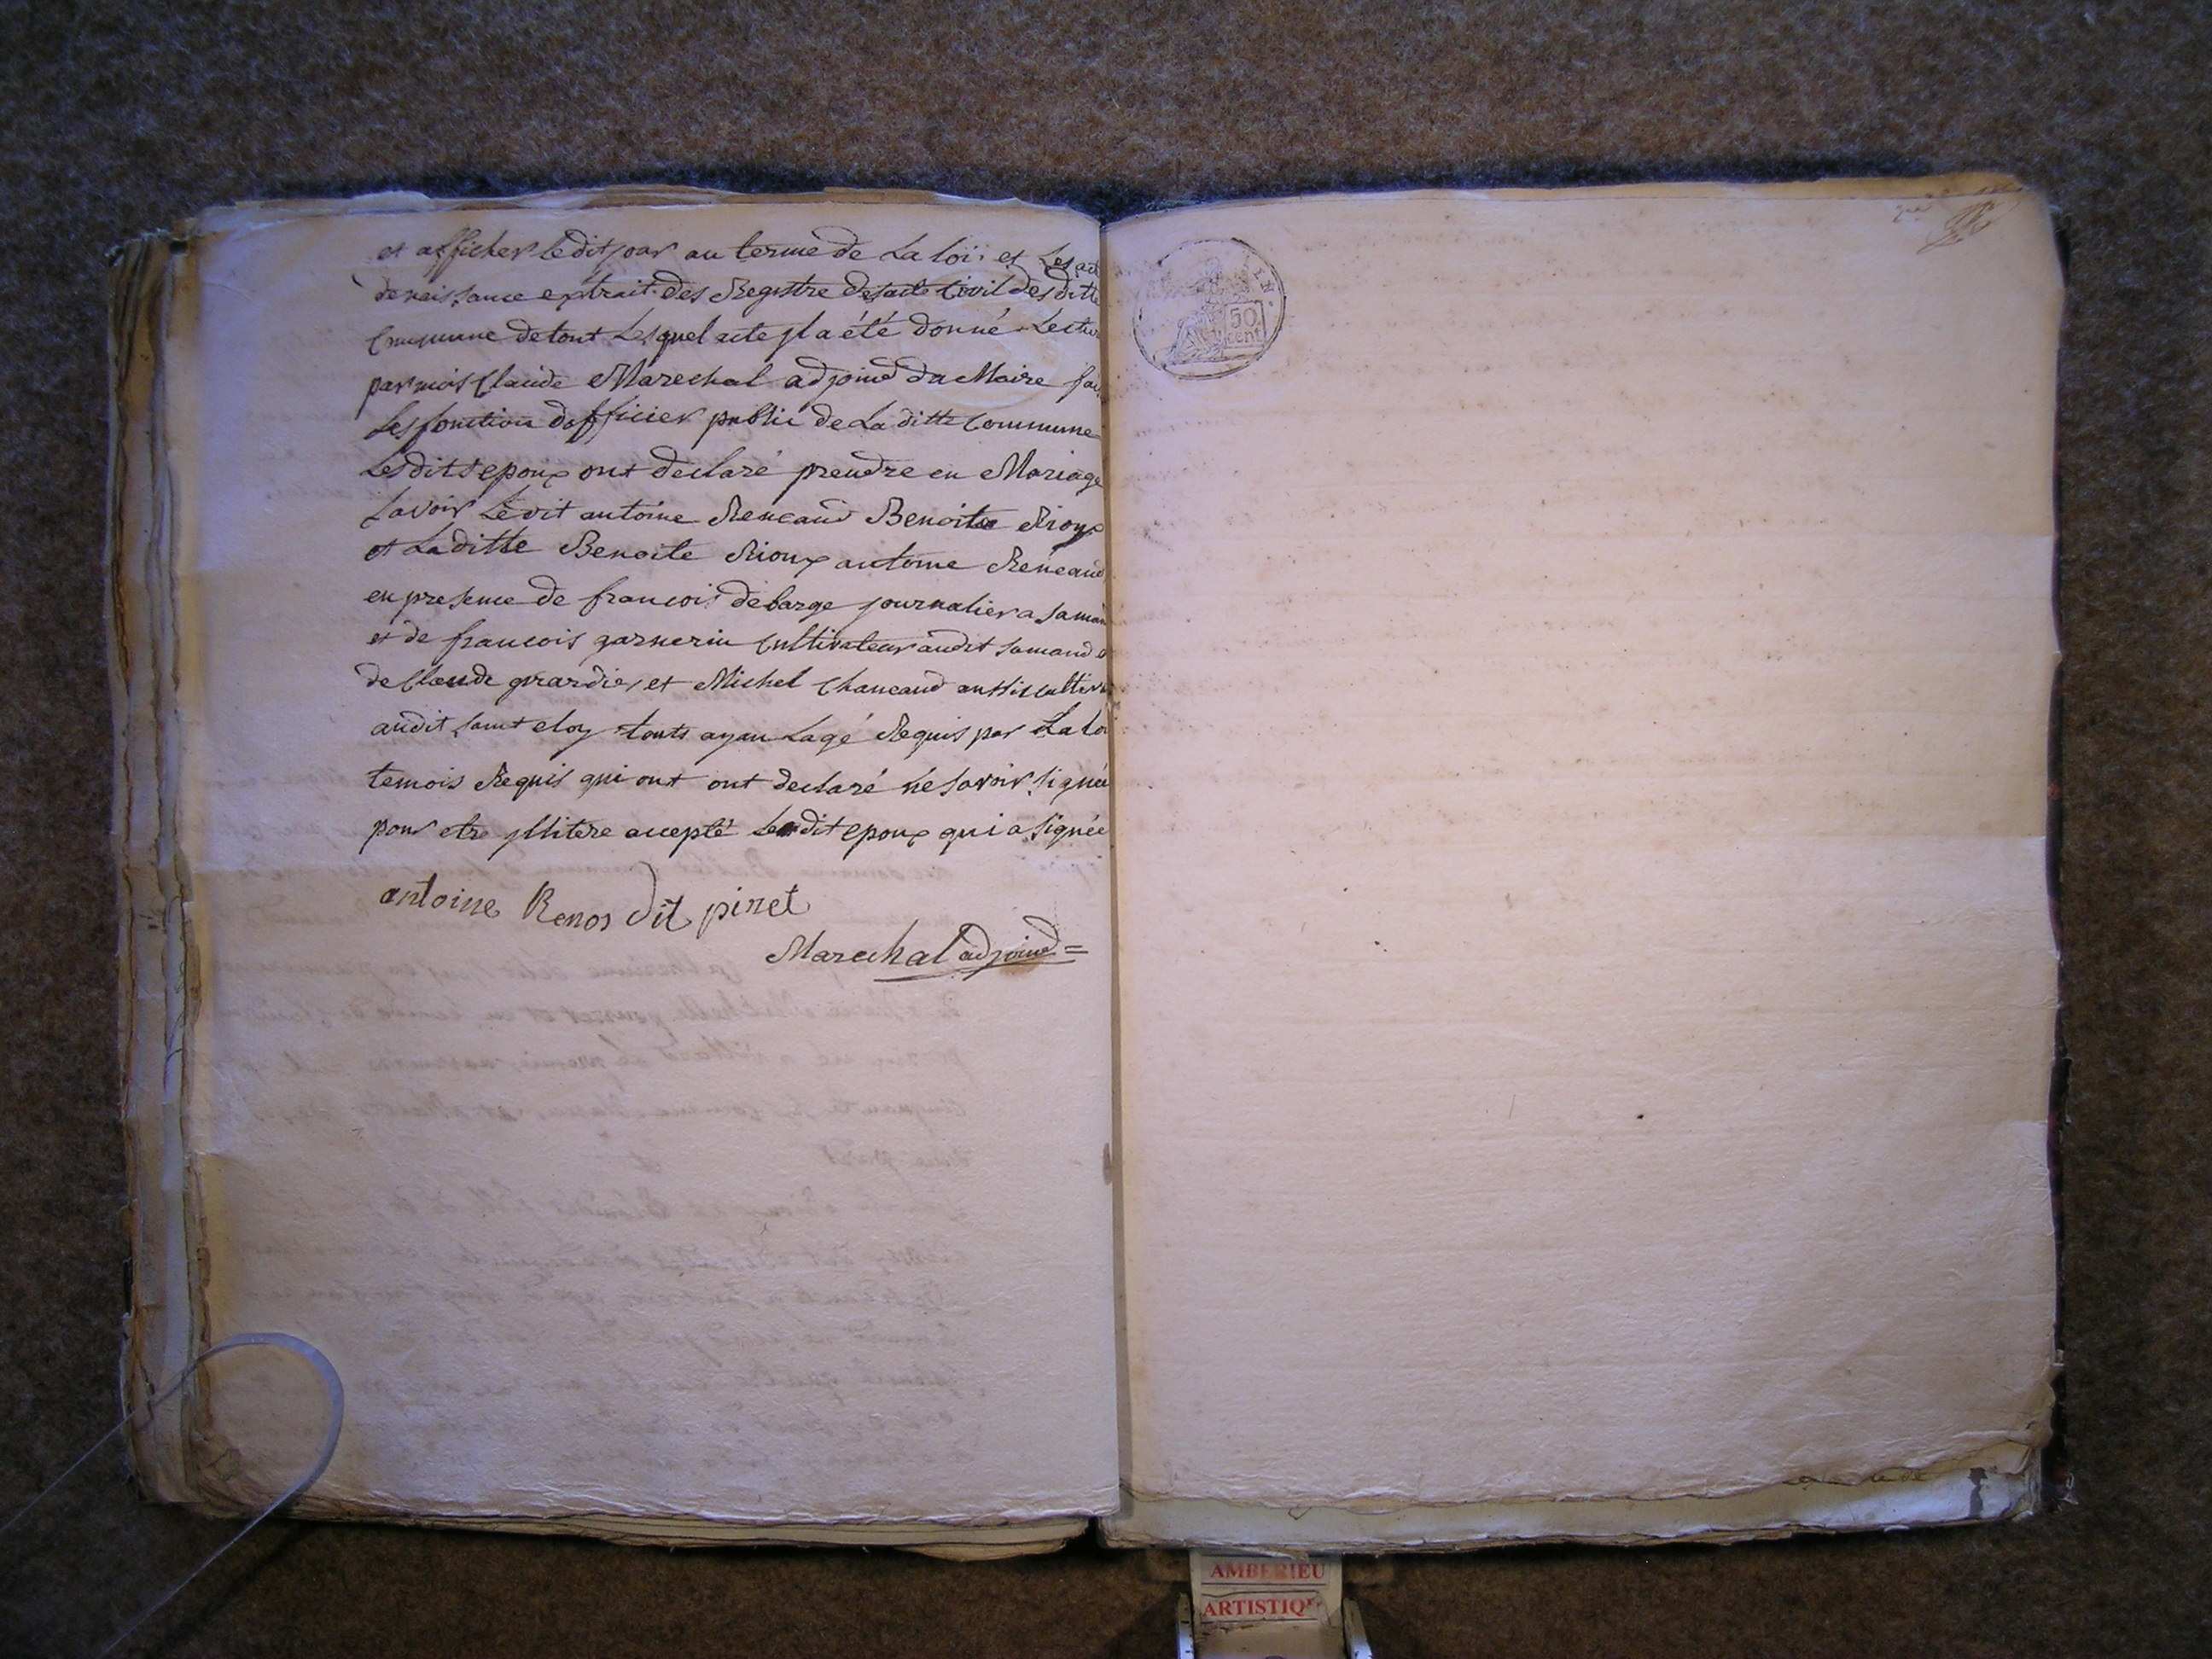 et afficher ledit jour au terme de La loi : et Les act
de naissance extrait des Registre desacte Civil des ditte
Commune de tout Lesquel acte jl a été donné Lectur
par mois Claude Marechal adjoind du Maire fai
Les fonction dofficier public de La ditte Commune
Les dits epoux ont declaré prendre en Mariage
Savoir Le dit antoine Reneaud Benoite Rioux
et La ditte Benoite Rioux antoine Reneaud
en presence de francois debarge journalier a Samand
et de francois garnerin Cultivateur audit Samand et
de Claude girardie, et Michel Chaneaud aussi cultiv
audit saint eloy touts ayan Lagé Requis par La loi
temois Requis qui ont ont declaré ne savoir signée
pour etre jllitere accepté Le dit epoux qui a signée
antoine Renos dit pinet
Marechal adjoind =
50
cent
AMBERIEU
ARTISTIQ